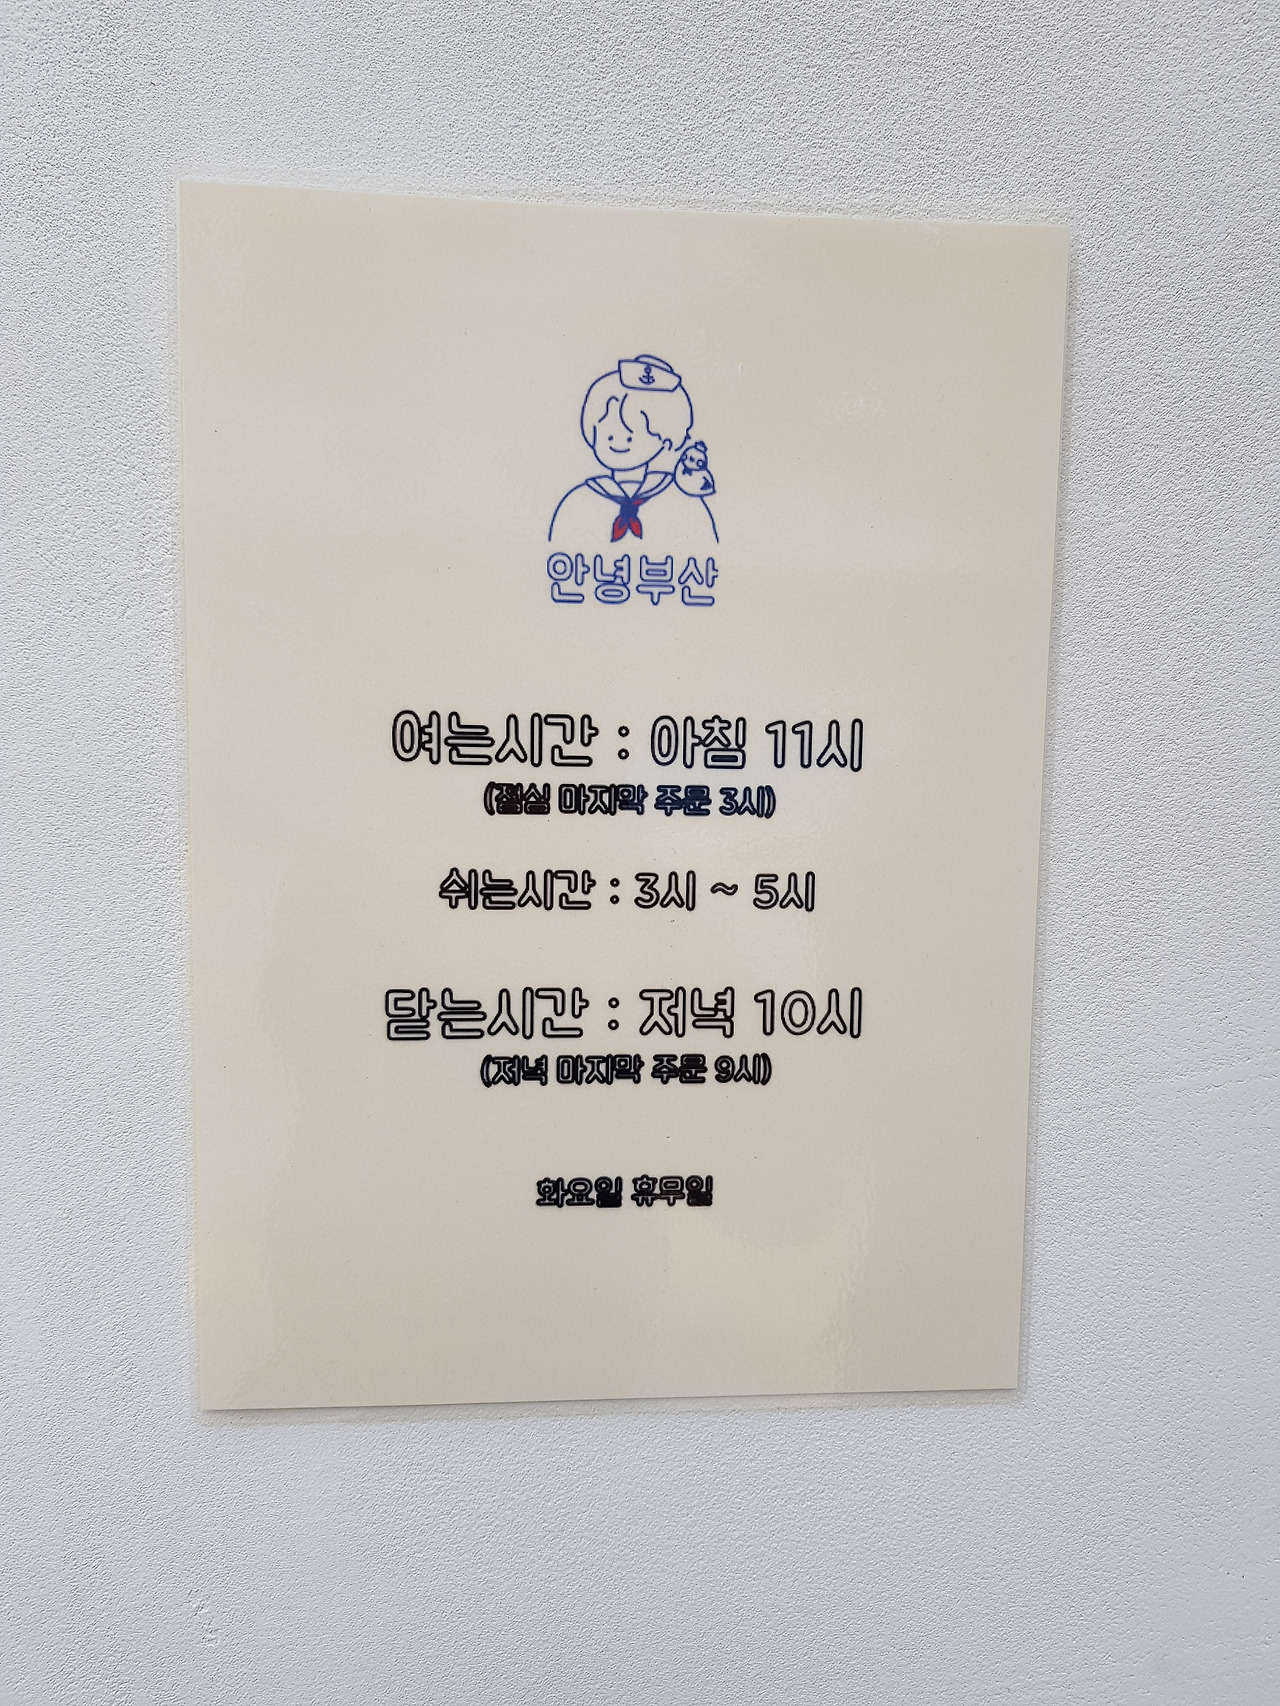 안녕부산
여는시간 : 아침 11시
(점심 마지막 주문 3시)
쉬는시간 : 3시 ~ 5시
닫는시간 : 저녁 10시
(저녁 마지막 주문 9시)
화요일 휴무일